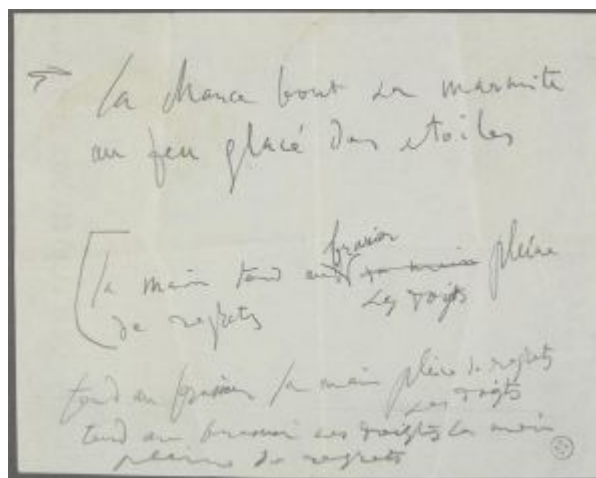 la chance bout sa marmite
au feu glacé des etoiles
brasier
la main tend au sa main pleine
ses doigts
de regrets
tend au brasier la main pleine de regrets
ses doigts
tend au brasier ses doigts la main
pleine de regrets